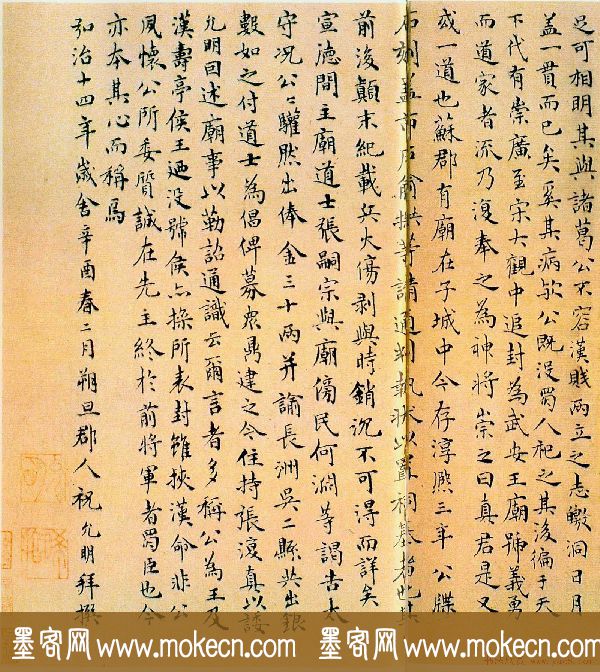 足可相明其與諸葛公不容漢賊兩立之志皦洞日月
盖一貫而已矣奚其病於公既没蜀人祀之其後徧于天
下代有崇廣至宋大觀中追封為武安王廟號義勇
而道家者流乃復奉之為神將崇之曰真君是又
或一道也蘇郡有廟在子城中今存淳熙三年公牒
石刻盖市户俞拱等請通判執狀以置祠基者也其
前後顛末紀載兵火傷剥與時銷沉不可得而詳矣
宣德間主廟道士張嗣宗與廟傍民何淵等謁告太
守况公公驩然出俸金三十兩并諭長洲吳二縣共出銀
數如之付道士為倡俾募衆鼎建之今住持張復真以諉
允明因述廟事以勒詔通識云爾言者多稱公為王及
漢壽亭侯王廼没號侯亦操所表封雖挾漢命非公
夙懷公所委質誠在先主終於前將軍者蜀臣也今
亦本其心而稱焉
弘治十四年歲舍辛酉春二月朔旦郡人祝允明拜撰
墨客网 www.mokecn.com 墨客网 www.mokecn.com